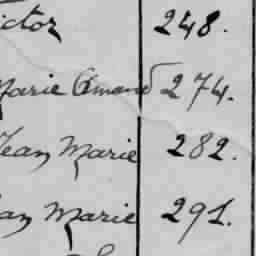 ictor 248.
Marie Amand 274.
Jean Marie 282.
an Marie 291.